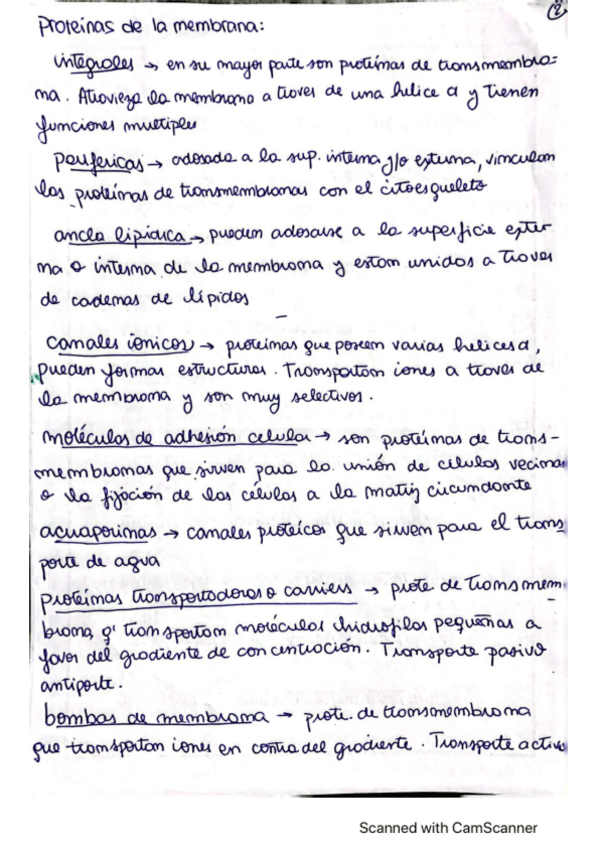 2
Proteinas de la membrana:
integrales → en su mayor parte son proteínas de transmembra=
na. Atravieza la membrana a traves de una helice α y tienen
funciones multiples
perifericas → adosada a la sup. interna y/o externa, vinculan
las proteínas de transmembranas con el citoesqueleto
ancla lipidica → pueden adosarse a la superficie exter
na o interna de la membrana y estan unidos a traves
de cadenas de lipidos
canales iónicos → proteinas que poseen varias helices α,
pueden formas estructuras. Transportan iones a traves de
la membrana y son muy selectivos.
moléculas de adhesión celular → son proteínas de trans-
membranas que sirven para la unión de células vecinas
o la fijación de las células a la matriz circundante
acuaporinas → canales protéicos que sirven para el trans
porte de agua
proteínas transportadoras o carriers → prote de transmem
brana q' transportan moléculas hidrofilas pequeñas a
favor del gradiente de concentración. Transporte pasivo
antiporte.
bombas de membrana → prote. de transmembrana
que transportan iones en contra del gradiente. Transporte activo
Scanned with CamScanner